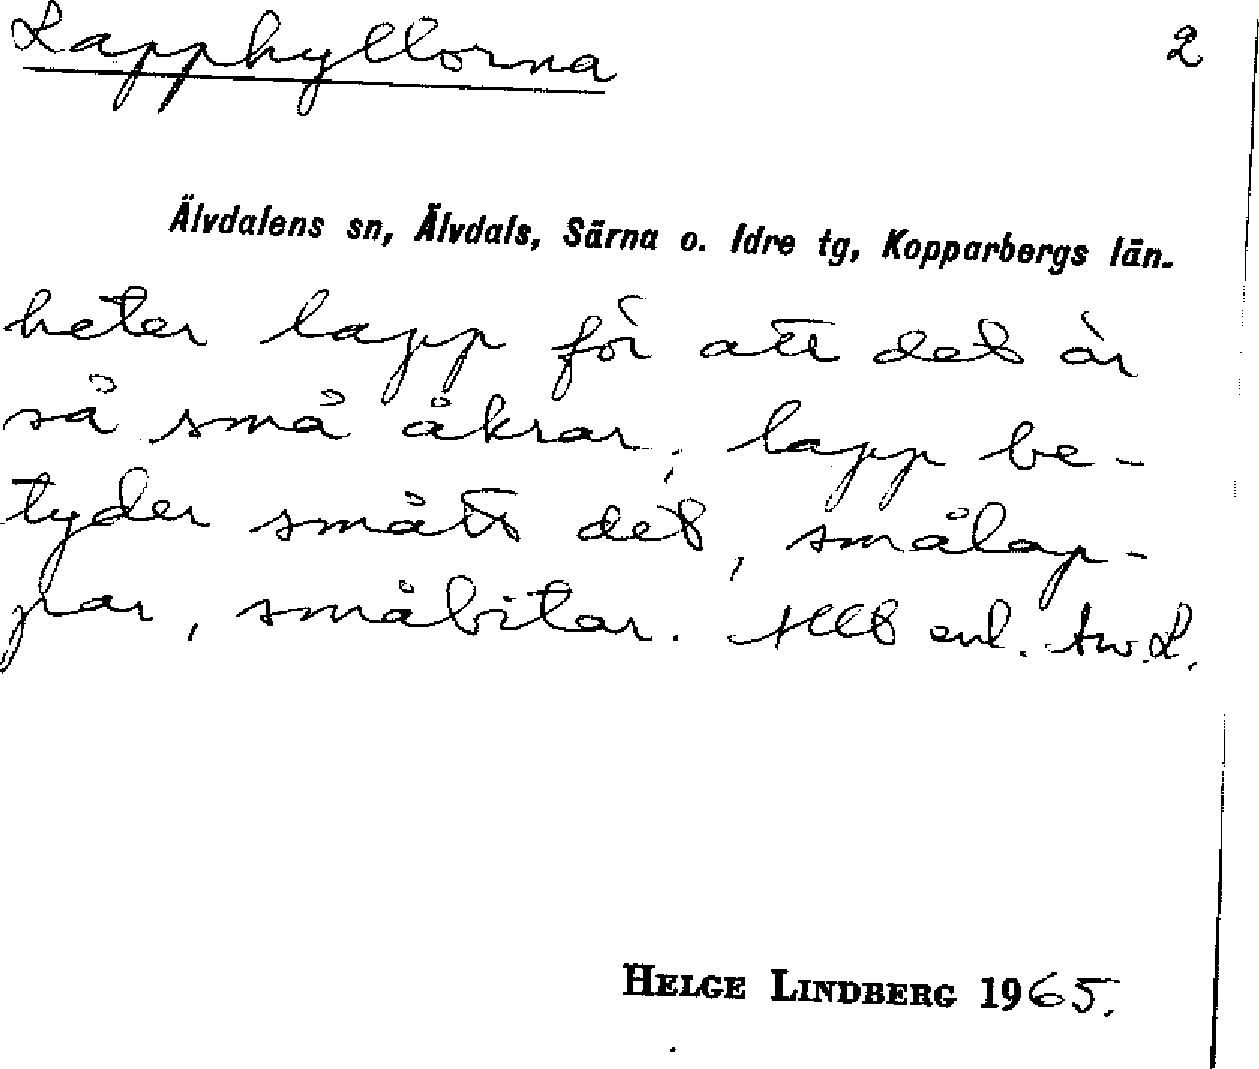 Lapphyllorna 2
Älvdalens sn, Älvdals, Särna o. Idre tg, Kopparbergs län.
heter lapp för att det är
så små åkrar, lapp be-
tyder smått det, smålap-
par, småbitar. Allt enl. Aw.L.
HELGE LINDBERG 1965.